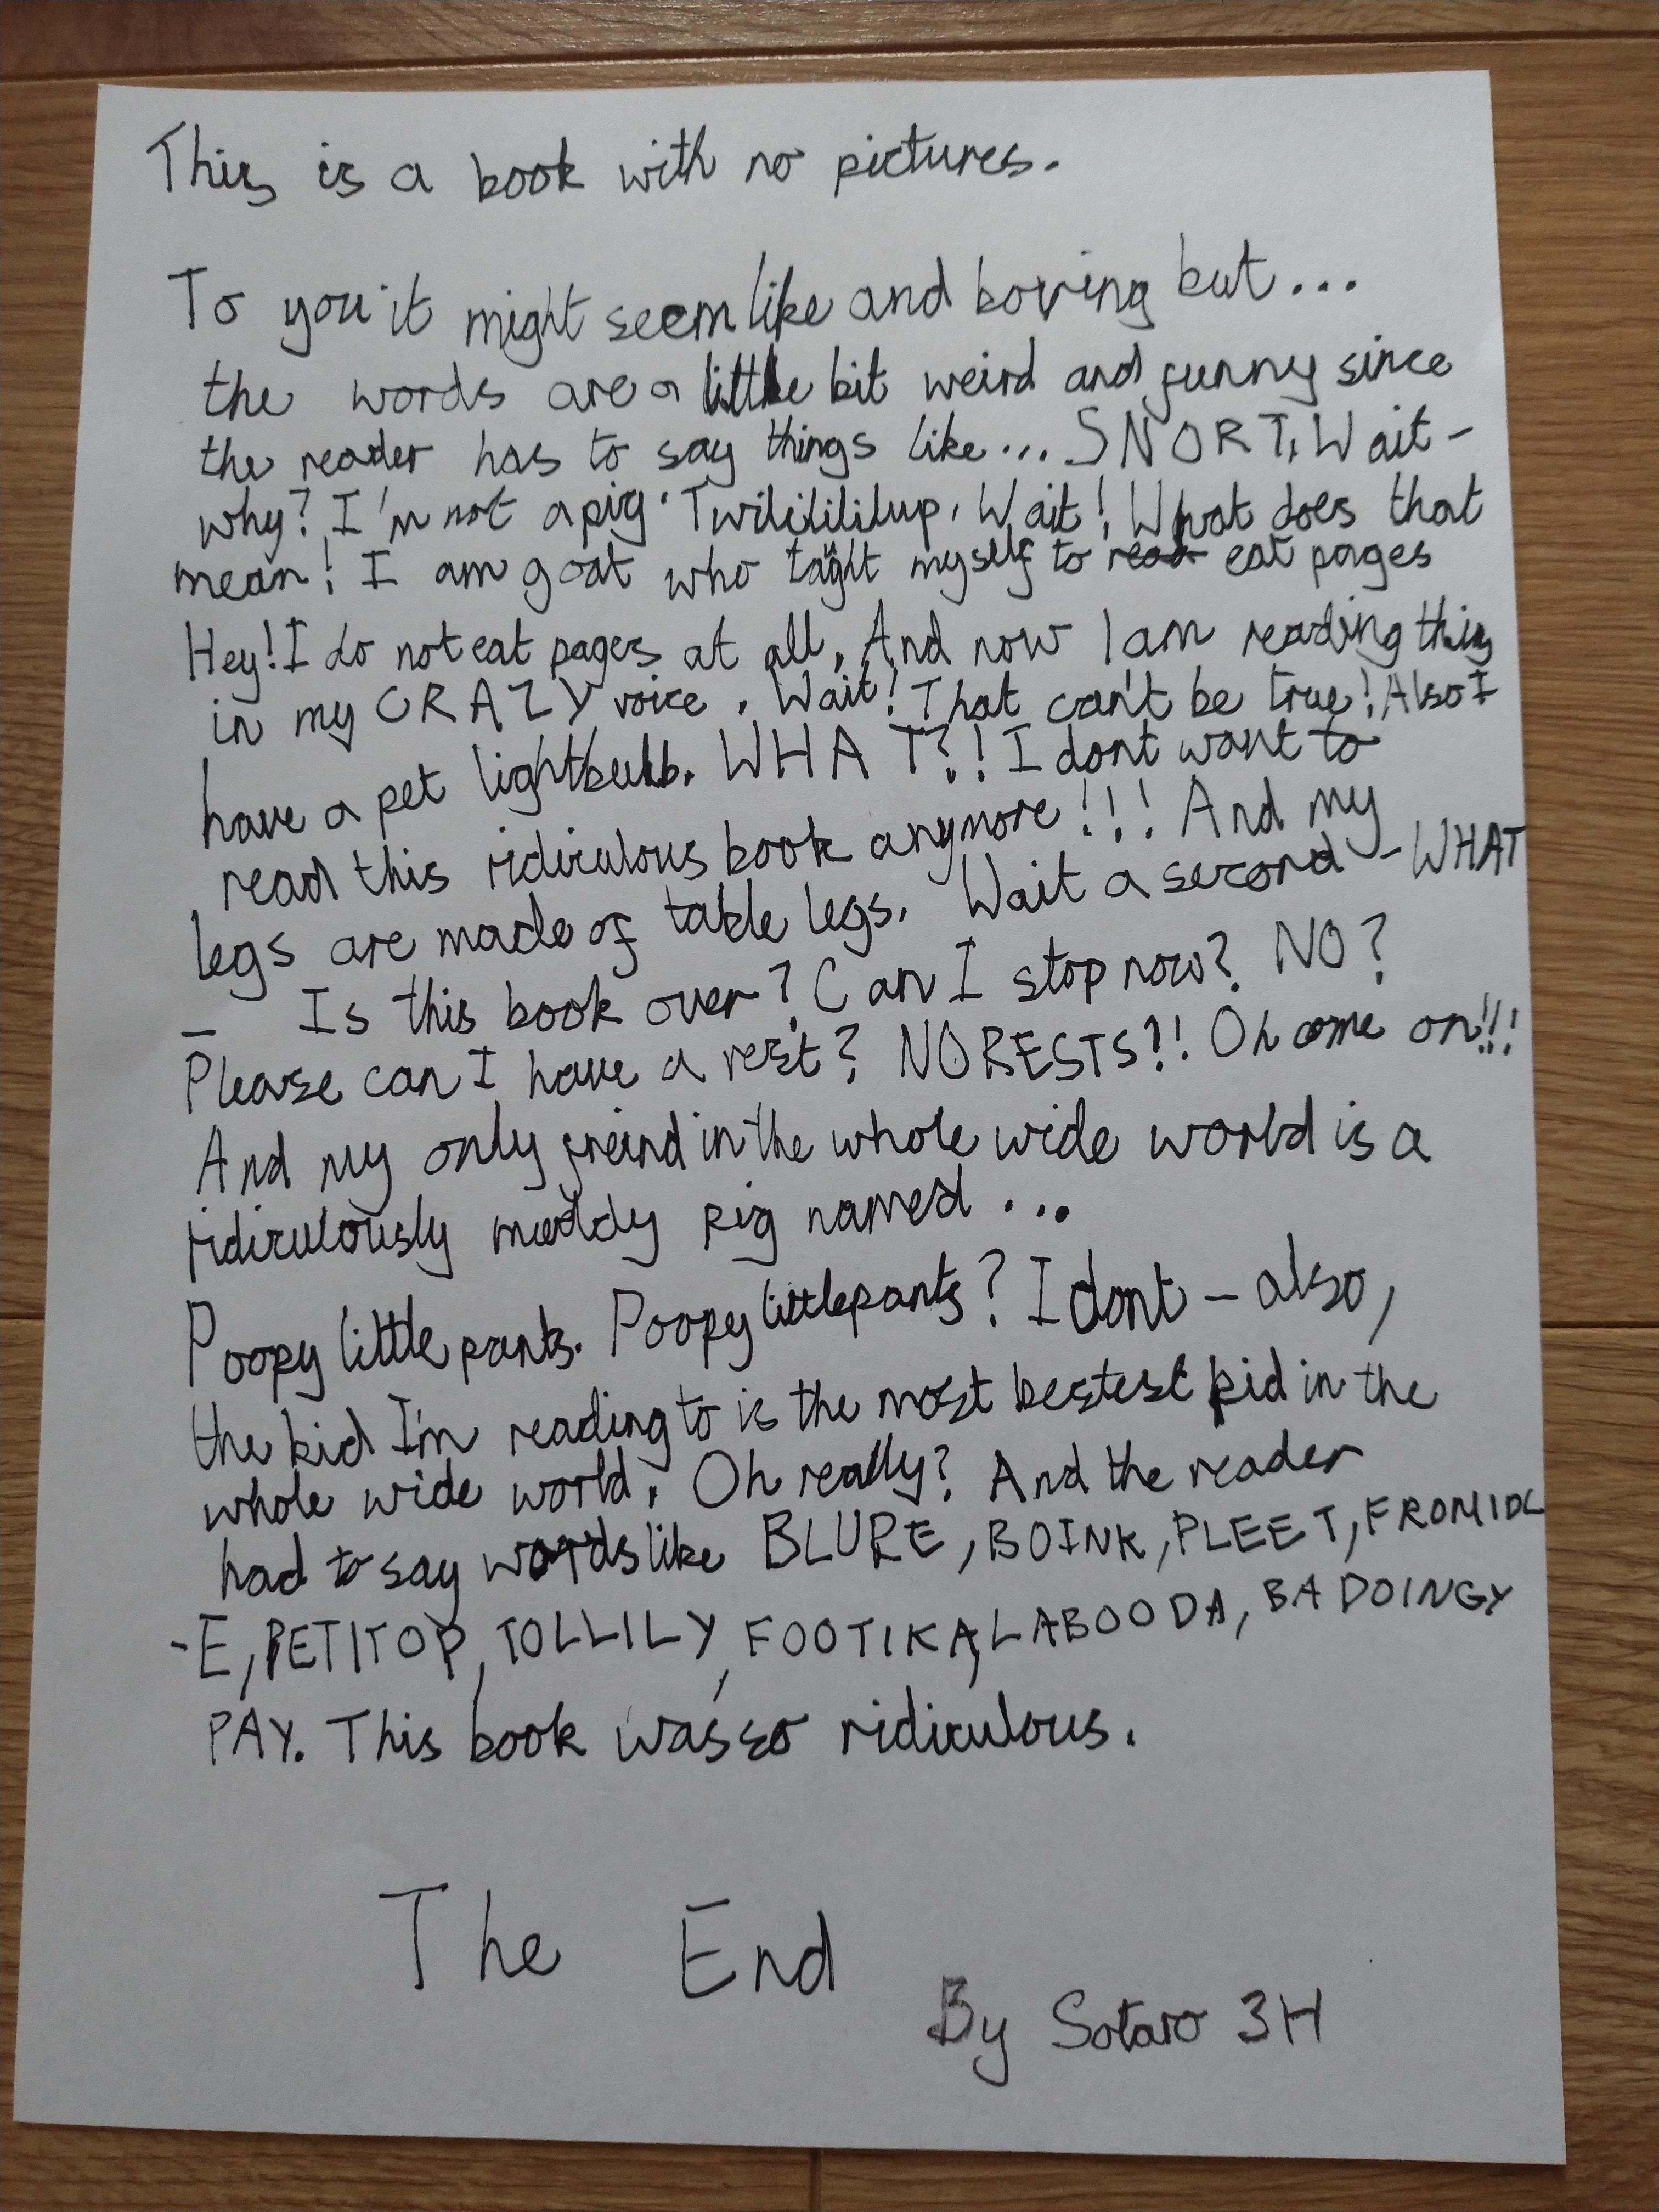 This is a book with no pictures.
To you it might seem like and boring but...
the words are a little bit weird and funny since
the reader has to say things like... SNORT, Wait -
why? I'm not a pig. Twililililup. Wait! What does that
mean! I am goat who taght myself to read eat pages
Hey! I do not eat pages at all. And now I am reading this
in my CRAZY voice. Wait! That can't be true! Also I
have a pet lightbulb. WHAT?! I dont want to
read this ridiculous book anymore!!! And my
legs are made of table legs. Wait a second - WHAT
- Is this book over? Can I stop now? NO?
Please can I have a rest? NO RESTS?! Oh come on!!!
And my only freind in the whole wide world is a
ridiculously muddy pig named...
Poopy little pants. Poopy little pants? I dont - also,
the kid I'm reading to is the most bestest kid in the
whole wide world. Oh really? And the reader
had to say words like BLURE, BOINK, PLEET, FROMIDL
-E, PETITOP, TOLLILY, FOOTIKA, LABOODA, BADOINGY
PAY. This book was so ridiculous.
The End
By Sotaro 3H